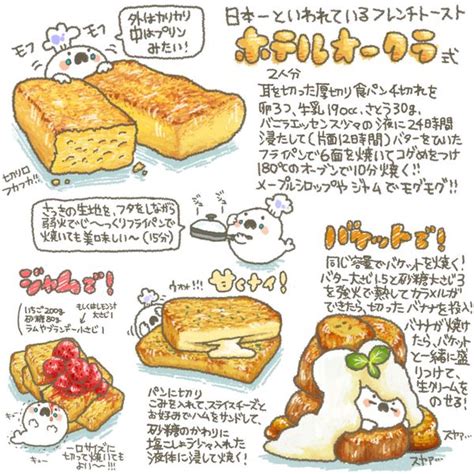 日本一といわれているフレンチトースト
ホテルオークラ式
モフ
モフ
外はカリカリ
中はプリン
みたい!
2人分
耳を切った厚切り食パン4切れを
卵3つ、牛乳190cc、さとう30g、
バニラエッセンス少々の液に24時間
浸たして(片面12時間)バターをひいた
フライパンで6面を焼いてコゲめをつけ
180℃のオーブンで10分焼く!!
メープルシロップや ジャムでモグモグ!!
切り口
フカフカ!!
さっきの生地を、フタをしながら
弱火でじ〜っくりフライパンで
焼いても美味しい〜(15分)
ジャムで!
いちご200g
砂糖80g
もしくはレモン汁
大さじ1
ラムやブランデー小さじ1
一口サイズに
切って焼いても
よい〜!!!
甘くナイ!
ウホッ!!!
パンに切り
こみを入れて スライスチーズと
お好みでハムをサンドして、
砂糖のかわりに
塩こしょう少々入れた
液体に浸して焼く!
バケットで!
同じ容量でバケットを焼く!
バター大さじ1.5と砂糖大さじ3
を強火で熱してカラメルが
できたら、切ったバナナを投入!
バナナが焼けたら、バケット
と一緒に盛
りつけて、
生クリームを
のせる!
スヤァ…
スヤァ…